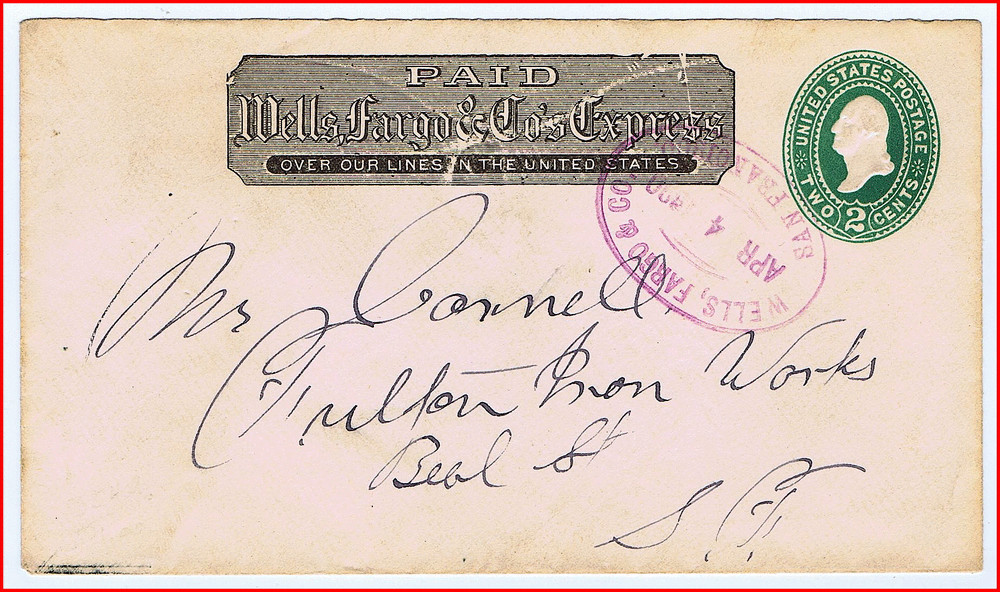 PAID
Wells, Fargo & Co's Express
OVER OUR LINES IN THE UNITED STATES
UNITED STATES POSTAGE
TWO 2 CENTS
WELLS, FARGO & CO
SAN FRAN
APR 4
Mr Connell
Fulton Iron Works
Beal St
S. F.